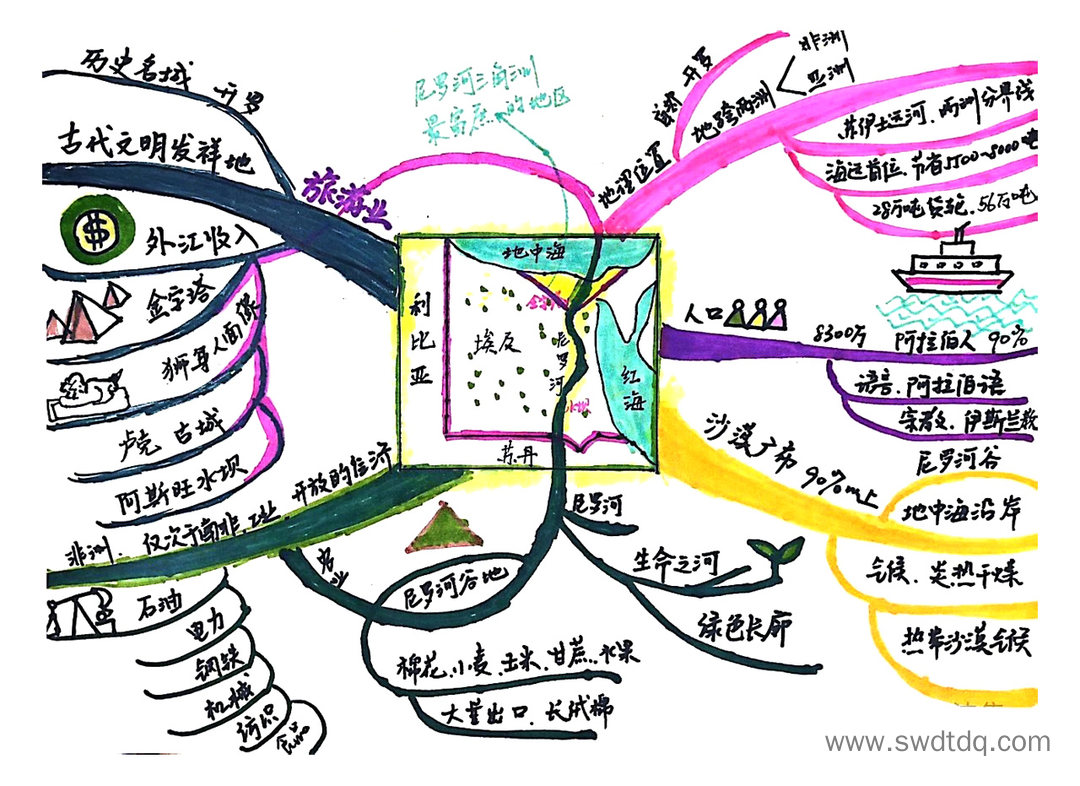 历史名城 开罗
古代文明发祥地
旅游业
外汇收入
金字塔
狮身人面像
卢克 古城
阿斯旺水坝
尼罗河三角洲
最富庶的地区
地理位置
首都 开罗
地跨两洲
非洲
亚洲
苏伊士运河、两洲分界线
海运首位、节省5500~8000
28万吨货轮、56万吨
人口
8300万 阿拉伯人 90%
语言、阿拉伯语
宗教、伊斯兰教
沙漠广布 90%以上
尼罗河谷
地中海沿岸
气候、炎热干燥
热带沙漠气候
地中海
利比亚
埃及
尼罗河
红海
水坝
苏丹
尼罗河
生命之河
绿色长廊
开放的经济
非洲、仅次于南非、工业
石油
电力
钢铁
机械
纺织
食品
农业
尼罗河谷地
棉花、小麦、玉米、甘蔗、水果
大量出口、长绒棉
www.swdtdq.com